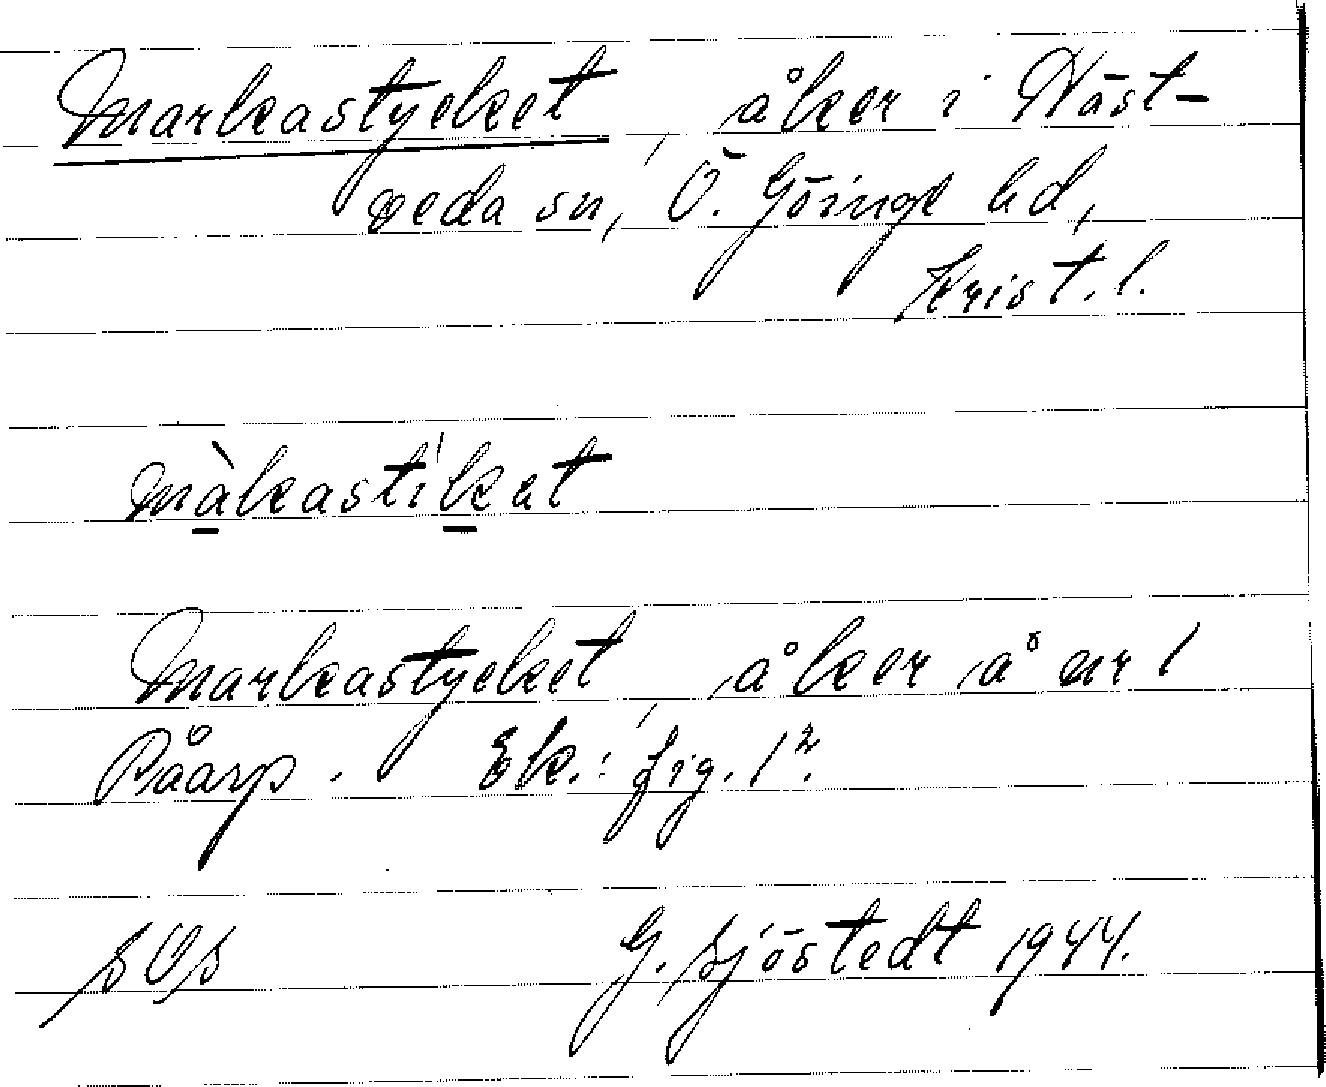 Markastycket, åker i Häst-
veda sn, Ö. Göinge hd,
Krist. l.
màkastikat
Markastycket, åker å nr 1
Påarp. Ek.: fig. 1².
G. Sjöstedt 1944.